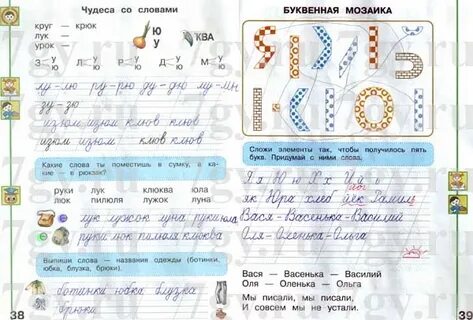 Чудеса со словами
круг — крюк
лук —
урок —
Ю
У
КВА
З У Ю Л У Ю Р У Ю Д У Ю М У Ю
лу-лю ру-рю ду-дю му-мю
зу-зю
изюм изюм клюв клюв
изюм изюм клюв клюв
Какие слова ты поместишь в сумку, а какие — в рюкзак?
руки лук клюква юла
люк пилюля лужок луна
лук лужок луна руки юла
руки люк пилюля клюква
Выпиши слова — названия одежды (ботинки, юбка, блузка, брюки).
ботинки юбка блузка
брюки
38
БУКВЕННАЯ МОЗАИКА
Сложи элементы так, чтобы получилось пять букв. Придумай с ними слова.
Яя Юю Хх Йй
як Юра хлеб йог
Вася-Васенька-Василий
Оля-Оленька-Ольга
Вася — Васенька — Василий
Оля — Оленька — Ольга
Мы писали, мы писали,
И совсем мы не устали.
39
7gy.ru